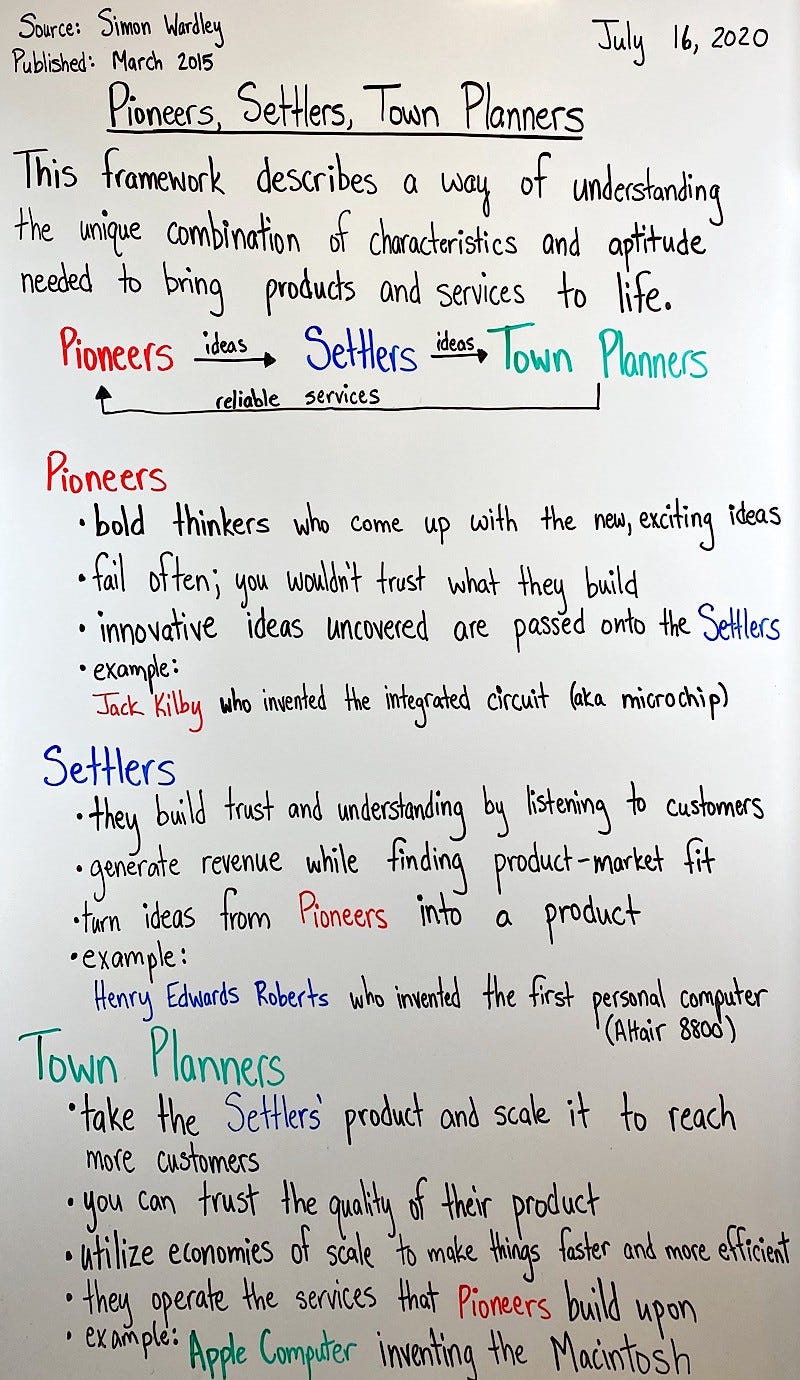 Source: Simon Wardley
Published: March 2015
July 16, 2020
Pioneers, Settlers, Town Planners
This framework describes a way of understanding
the unique combination of characteristics and aptitude
needed to bring products and services to life.
Pioneers ideas Settlers ideas Town Planners
reliable services
Pioneers
• bold thinkers who come up with the new, exciting ideas
• fail often; you wouldn't trust what they build
• innovative ideas uncovered are passed onto the Settlers
• example:
Jack Kilby who invented the integrated circuit (aka microchip)
Settlers
• they build trust and understanding by listening to customers
• generate revenue while finding product-market fit
• turn ideas from Pioneers into a product
• example:
Henry Edwards Roberts who invented the first personal computer
(Altair 8800)
Town Planners
• take the Settlers' product and scale it to reach
more customers
• you can trust the quality of their product
• utilize economies of scale to make things faster and more efficient
• they operate the services that Pioneers build upon
• example: Apple Computer inventing the Macintosh